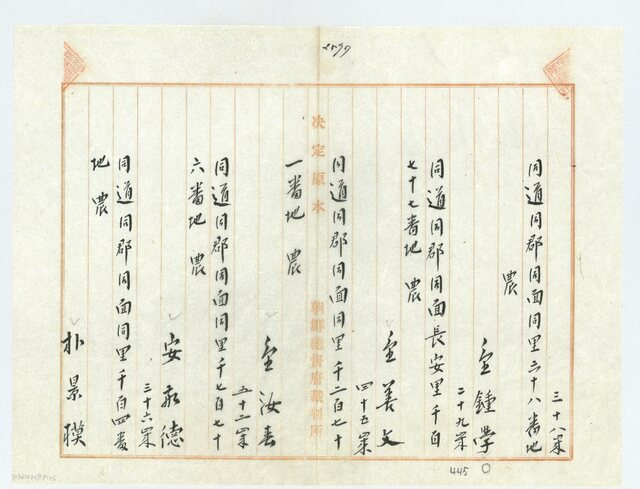 2599
三十八歳
同道同郡同面同里三十八番地
農
金鍾學
二十九歳
同道同郡同面長安里千百
七十七番地 農
金善文
四十五歳
決定原本
朝鮮總督府裁判所
同道同郡同面同里千二百七十
一番地 農
金汝春
五十二歳
同道同郡同面同里千七百七十
六番地 農
安永德
三十六歳
同道同郡同面同里千百四番
地 農
朴景模
445